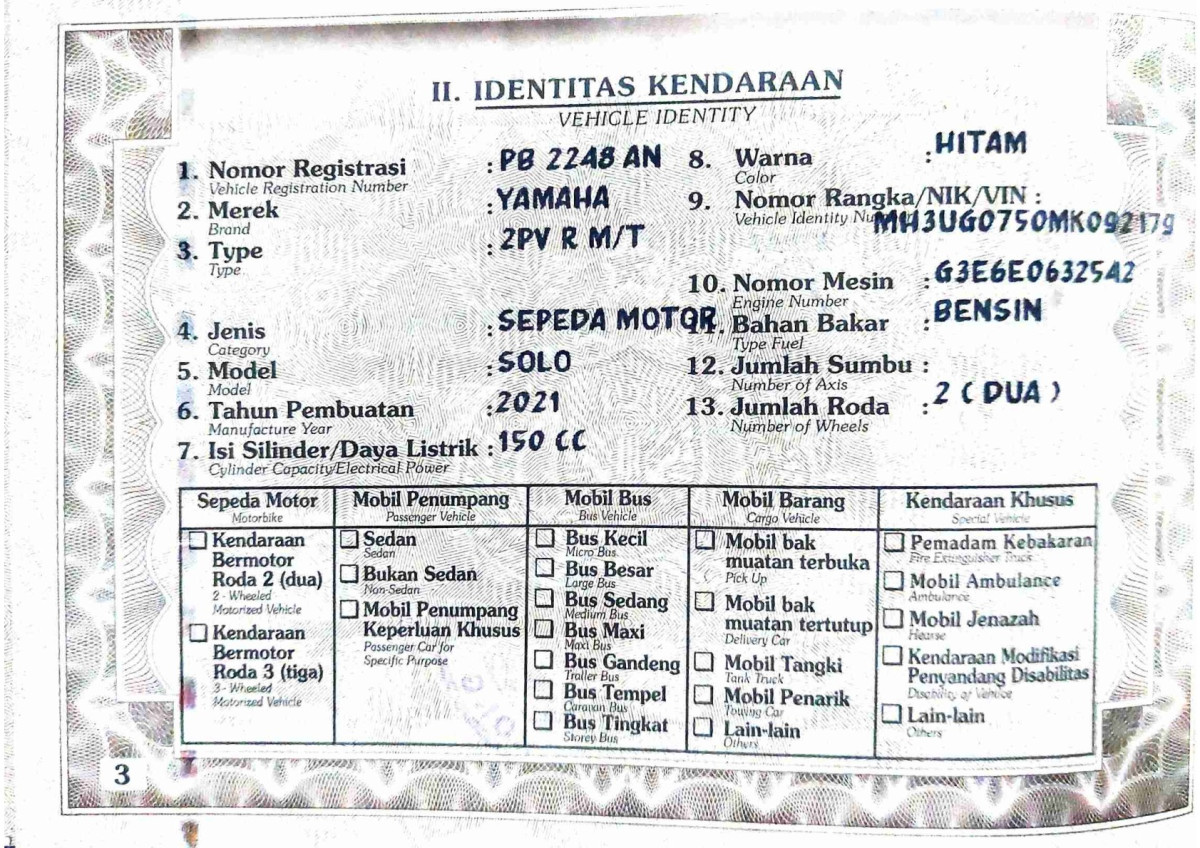 II. IDENTITAS KENDARAAN
VEHICLE IDENTITY
1. Nomor Registrasi : PB 2248 AN
Vehicle Registration Number
2. Merek : YAMAHA
Brand
3. Type : 2PV R M/T
Type
4. Jenis : SEPEDA MOTOR
Category
5. Model : SOLO
Model
6. Tahun Pembuatan : 2021
Manufacture Year
7. Isi Silinder/Daya Listrik : 150 CC
Cylinder Capacity/Electrical Power
8. Warna : HITAM
Color
9. Nomor Rangka/NIK/VIN :
Vehicle Identity
MH3UG0750MK092179
10. Nomor Mesin : G3E6E0632542
Engine Number
11. Bahan Bakar : BENSIN
Type Fuel
12. Jumlah Sumbu :
Number of Axis
13. Jumlah Roda : 2 ( DUA )
Number of Wheels
Sepeda Motor
Motorbike
Kendaraan
Bermotor
Roda 2 (dua)
2 - Wheeled
Motorized Vehicle
Kendaraan
Bermotor
Roda 3 (tiga)
3 - Wheeled
Motorized Vehicle
Mobil Penumpang
Passenger Vehicle
Sedan
Sedan
Bukan Sedan
Non-Sedan
Mobil Penumpang
Keperluan Khusus
Passenger Car for
Specific Purpose
Mobil Bus
Bus Vehicle
Bus Kecil
Micro Bus
Bus Besar
Large Bus
Bus Sedang
Medium Bus
Bus Maxi
Maxi Bus
Bus Gandeng
Trailer Bus
Bus Tempel
Caravan Bus
Bus Tingkat
Storey Bus
Mobil Barang
Cargo Vehicle
Mobil bak
muatan terbuka
Pick Up
Mobil bak
muatan tertutup
Delivery Car
Mobil Tangki
Tank Truck
Mobil Penarik
Towing Car
Lain-lain
Others
Kendaraan Khusus
Special Vehicle
Pemadam Kebakaran
Fire Extinguisher Truck
Mobil Ambulance
Ambulance
Mobil Jenazah
Hearse
Kendaraan Modifikasi
Penyandang Disabilitas
Disability of Vehicle
Lain-lain
Others
3